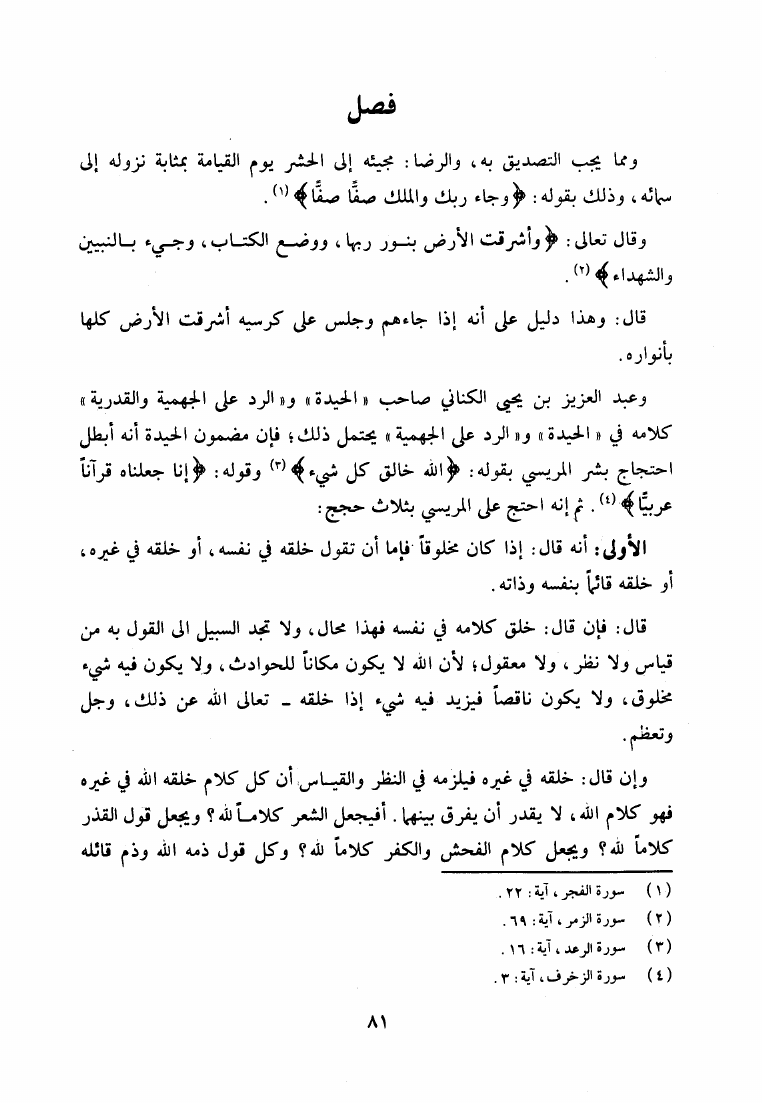 فصل
ومما يجب التصديق به، والرضا: مجيئه إلى الحشر يوم القيامة بمثابة نزوله إلى
سمائه، وذلك بقوله: ﴿وجاء ربك والملك صفًّا صفًّا﴾ (١).
وقال تعالى: ﴿وأشرقت الأرض بنور ربها، ووضع الكتاب، وجيء بالنبيين
والشهداء﴾ (٢).
قال: وهذا دليل على أنه إذا جاءهم وجلس على كرسيه أشرقت الأرض كلها
بأنواره.
وعبد العزيز بن يحيى الكناني صاحب «الحيدة» و«الرد على الجهمية والقدرية»
كلامه في «الحيدة» و«الرد على الجهمية» يحتمل ذلك؛ فإن مضمون الحيدة أنه أبطل
احتجاج بشر المريسي بقوله: ﴿الله خالق كل شيء﴾ (٣) وقوله: ﴿إنا جعلناه قرآناً
عربيًّا﴾ (٤). ثم إنه احتج على المريسي بثلاث حجج:
الأولى: أنه قال: إذا كان مخلوقاً فإما أن تقول خلقه في نفسه، أو خلقه في غيره،
أو خلقه قائماً بنفسه وذاته.
قال: فإن قال: خلق كلامه في نفسه فهذا محال، ولا تجد السبيل الى القول به من
قياس ولا نظر، ولا معقول؛ لأن الله لا يكون مكاناً للحوادث، ولا يكون فيه شيء
مخلوق، ولا يكون ناقصاً فيزيد فيه شيء إذا خلقه ـ تعالى الله عن ذلك، وجل
وتعظم.
وإن قال: خلقه في غيره فيلزمه في النظر والقياس أن كل كلام خلقه الله في غيره
فهو كلام الله، لا يقدر أن يفرق بينهما. أفيجعل الشعر كلاماً لله؟ ويجعل قول القذر
كلاماً لله؟ ويجعل كلام الفحش والكفر كلاماً لله؟ وكل قول ذمه الله وذم قائله
(١) سورة الفجر، آية: ٢٢.
(٢) سورة الزمر، آية: ٦٩.
(٣) سورة الرعد، آية: ١٦.
(٤) سورة الزخرف، آية: ٣.
٨١